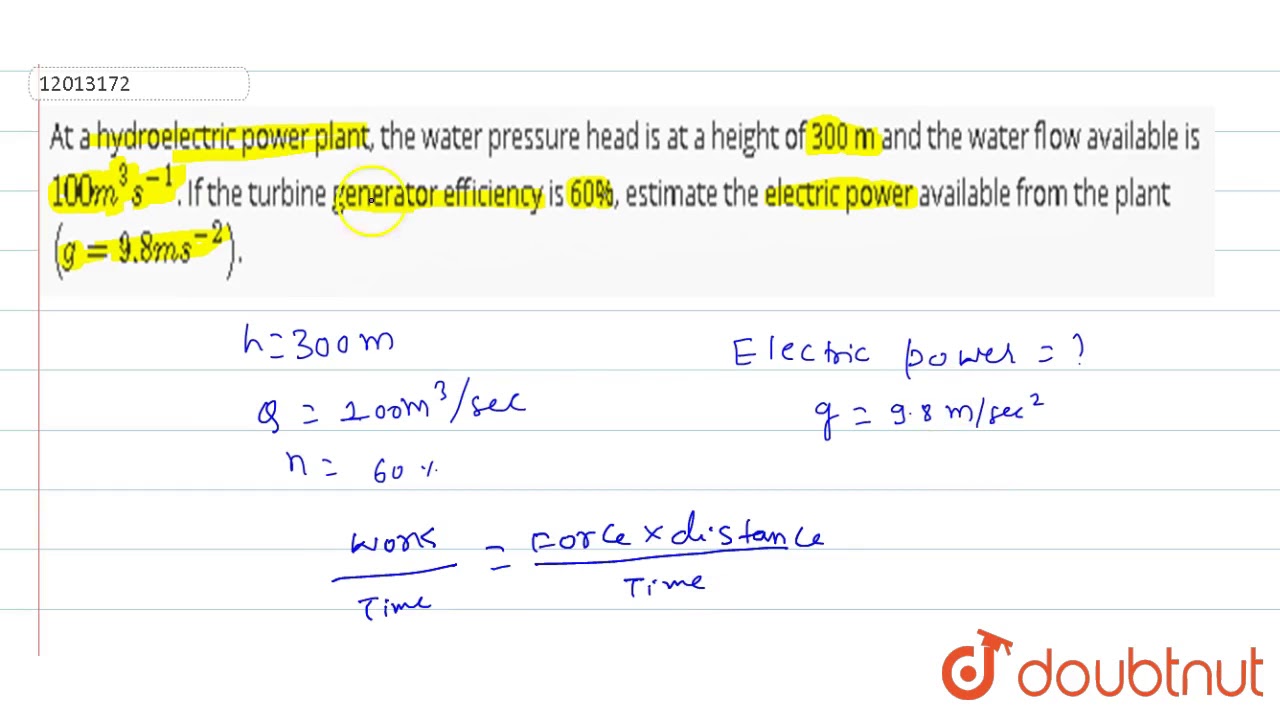 12013172
At a hydroelectric power plant, the water pressure head is at a height of 300 m and the water flow available is
100m³s⁻¹. If the turbine generator efficiency is 60%, estimate the electric power available from the plant
(g = 9.8ms⁻²).
h = 300m
Electric power = ?
Q = 100m³/sec
g = 9.8 m/sec²
n = 60 %
Work/Time = Force × distance/Time
doubtnut